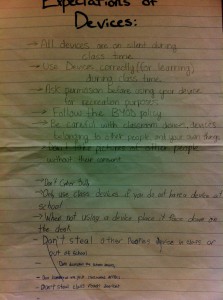 Expectations of
Devices:
→ All devices are on silent during
class time.
→ Use Devices correctly (for learning)
during class time.
→ Ask permission before using your device
for recreation purposes.
→ Follow the BYOD policy
→ Be careful with classroom devices, devices
belonging to other people and your own things
pictures of other people
without their consent.
- Don't Cyber Bully
- Only use class devices if you do not have a device at
school
- While not using a device place it face down on
the desk
- Don't steal other devices in class or
out of school
- Don't steal class room devices